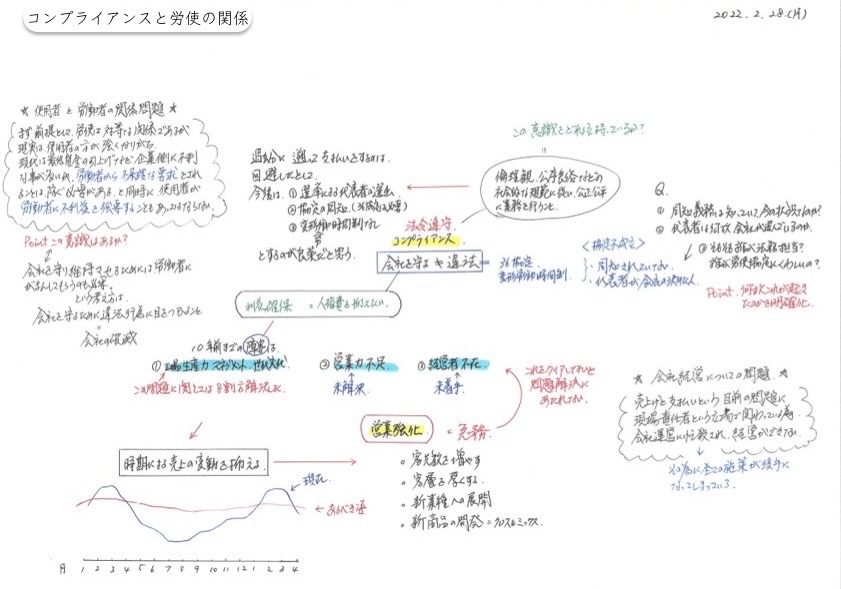 コンプライアンスと労使の関係
2022. 2. 28.(月)
★ 使用者と労働者の関係問題 ★
まず前提として、労使は対等な関係であるが
現実は使用者の方が強くなりがち。
現代は最低賃金の引上げなど企業側に不利
な事が多いため、労働者から不条理な要求をされ
ることは防ぐ必要がある。と同時に使用者が
労働者に不利益を強要することもあってはならない。
Point この意識はあるか?
会社を守り維持させるためには労働者に
がまんしてもらうのも必要。
という考え方は、
会社を守るために違法行為に目をつむること
=
会社の破滅
過去に遡って支払いをするのは
回避したとして、
今後は、① 選挙による代表者の選出
② 協定の周知。(36協定は必要)
③ 変形労働時間制
とするのが良策だと思う。
この意識をどれだけ持っているか?
倫理観、公序良俗などの
社会的な規範に従い、公正公平
に業務を行うこと。
法令遵守
コンプライアンス
会社を守る ≠ 違法
= 36協定
変形労働時間制
<協定不成立>
・周知されていない
・代表者が会社の決めた人
Q.
① 周知義務は知っていて今の状況なのか?
② 代表者は何故会社が選んでいるのか。
Point. 何故これが起き
たのかを明確化。
利益確保 = 人格費を抑えたい
10年前までの障害は
① 工場生産力
② 営業力不足
③ 経営者不在
この問題に関しては8割方解決した
未解決
未着手
これをクリアしないと
問題解決に
あたれない。
営業強化 = 急務
時期による売上の変動を抑える
・客先数を増やす
・客層を厚くする
・新業種への展開
・新商品の開発 = クロスミックス
現在
あるべき姿
月 1 2 3 4 5 6 7 8 9 10 11 12 1 2 3 4
★ 会社経営についての問題 ★
売上げと支払いという目前の問題に
現場責任者という立場で関わっている為
会社運営に忙殺され、経営ができない
その為に全ての施策が後手に
なってしまっている。